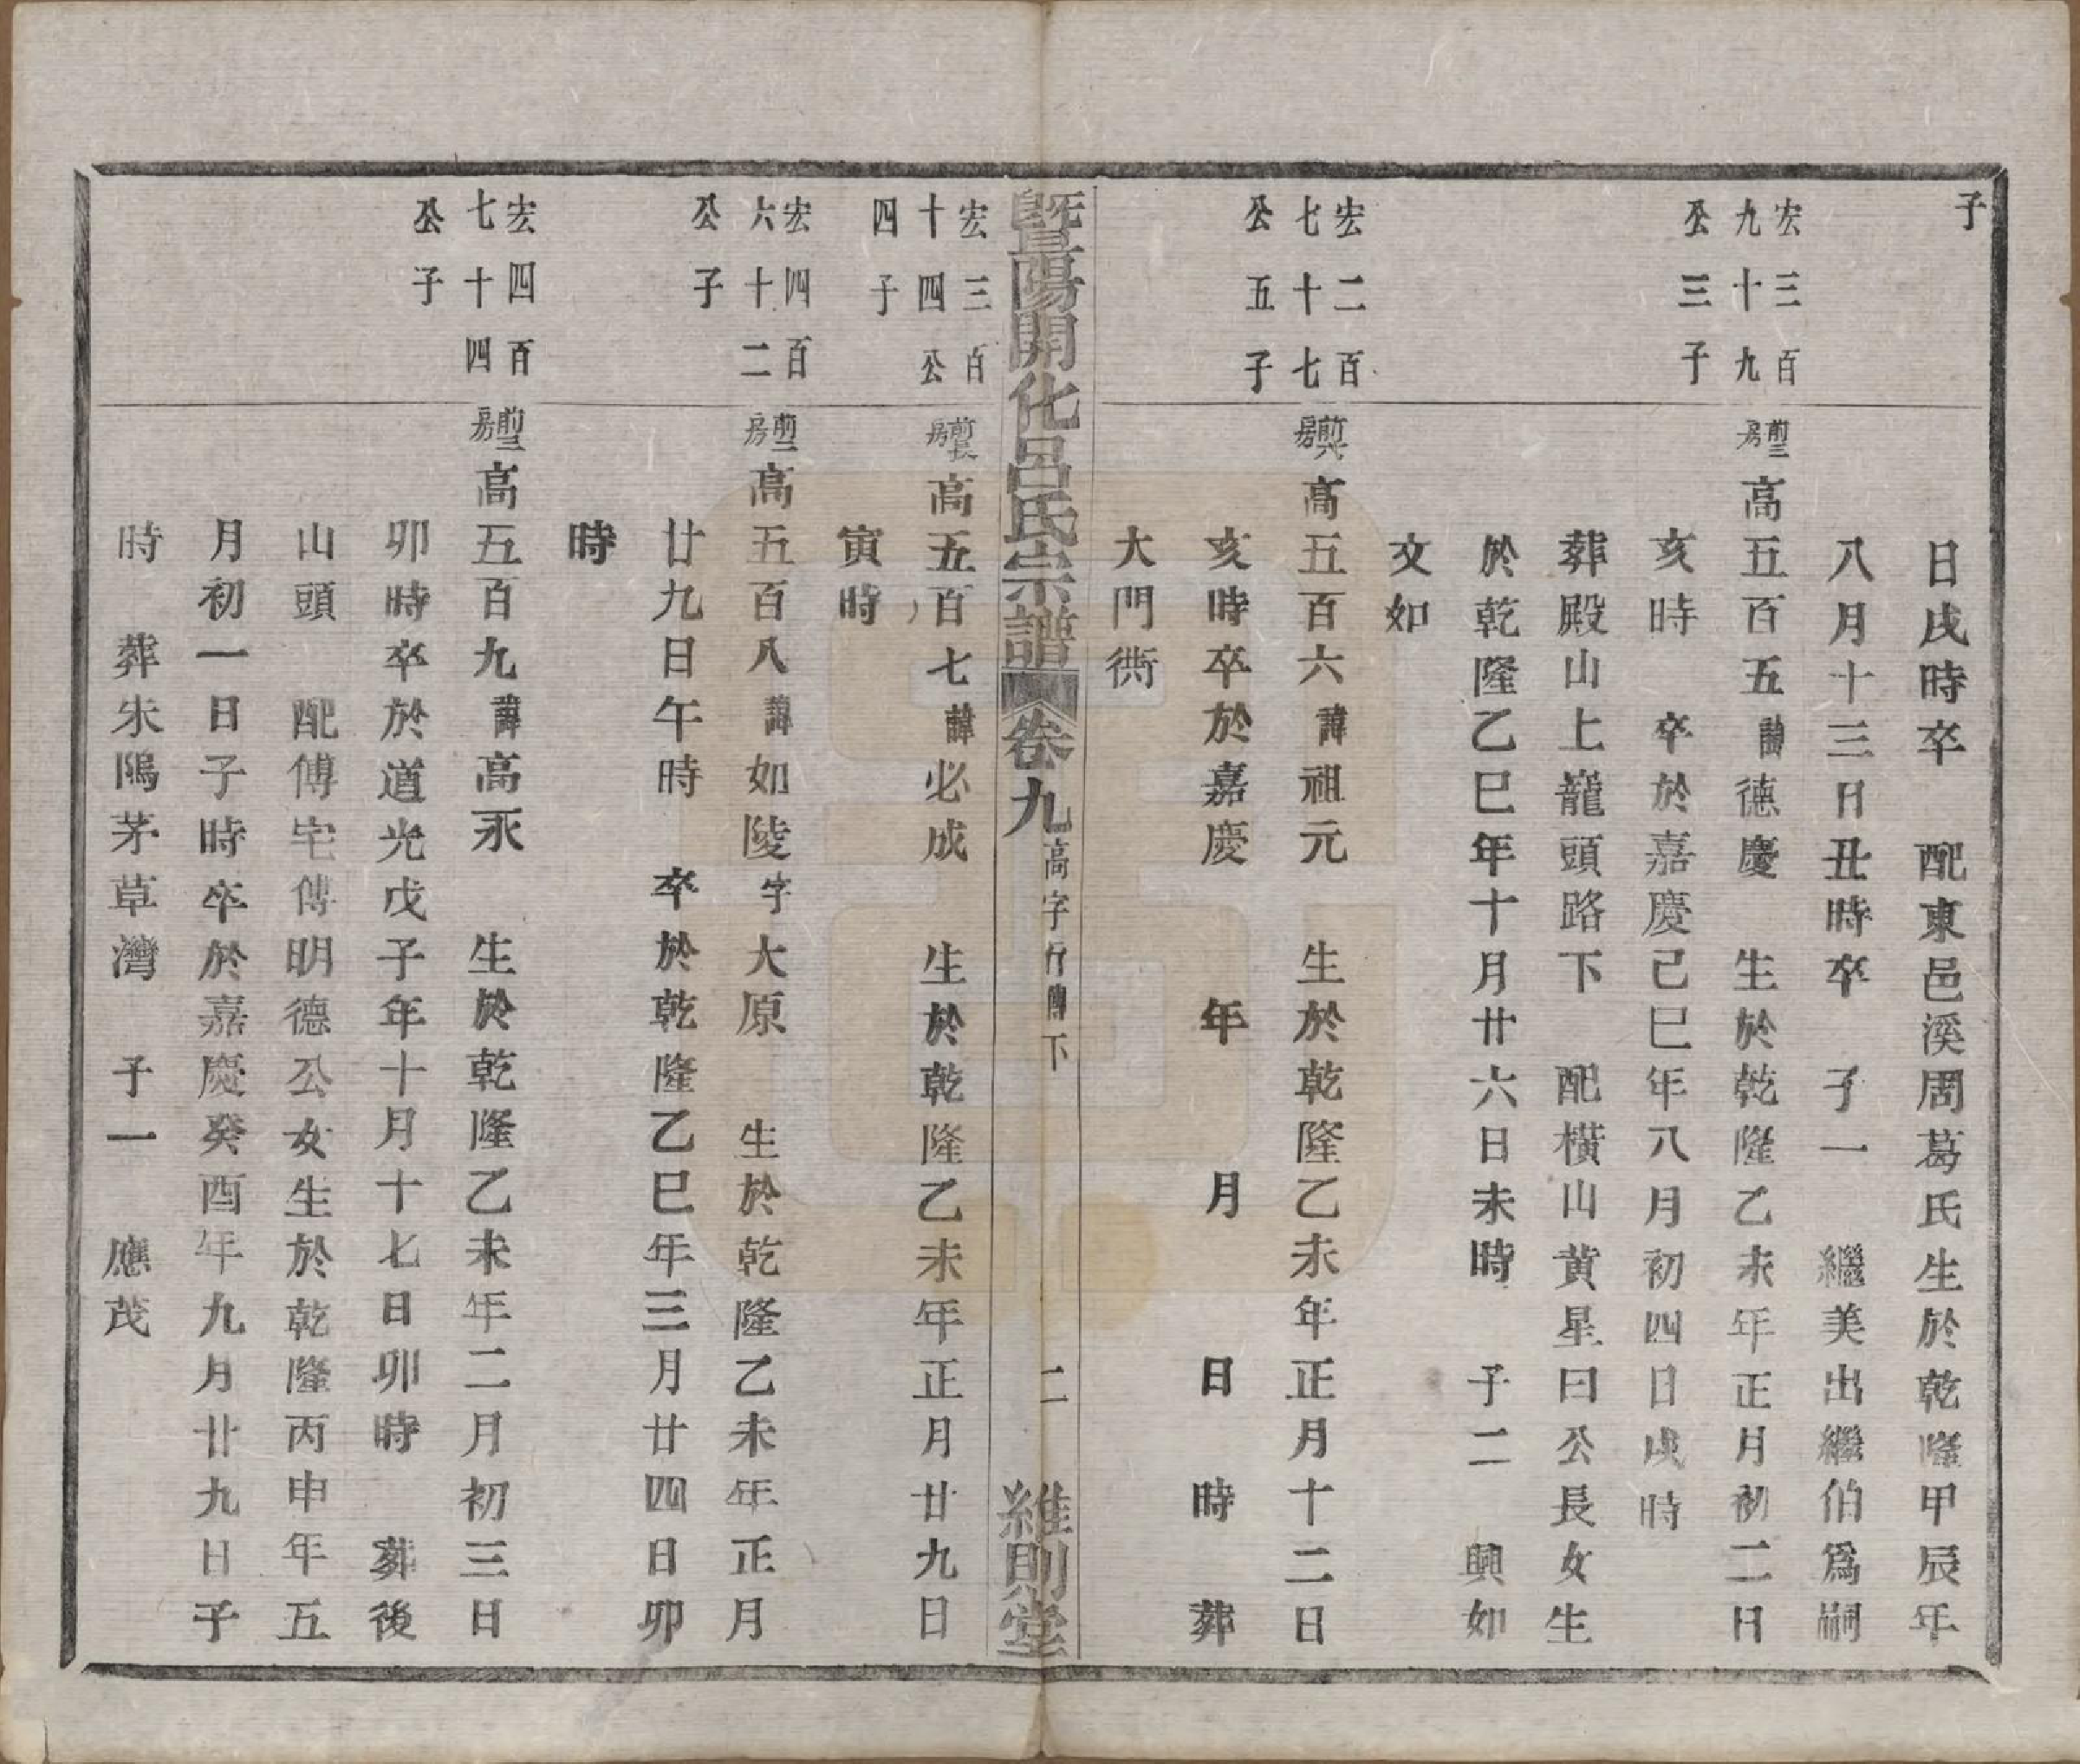 子
日戌時卒　配東邑溪周葛氏生於乾隆甲辰年
八月十三日丑時卒　子一　繼美出繼伯爲嗣
宏三百九十九公三子
高五百五諱德慶　生於乾隆乙未年正月初二日
亥時　卒於嘉慶己巳年八月初四日戌時
葬殿山上龍頭路下　配橫山黃星曰公長女生
於乾隆乙巳年十月廿六日未時　子二　興如
文如
宏二百七十七公五子
高五百六諱祖元　生於乾隆乙未年正月十二日
亥時卒於嘉慶　年　月　日　時　葬
大門衖
暨陽開化呂氏宗譜　卷九　高字行傳下　二　維則堂
宏三百十四公四子
高五百七諱必成　生於乾隆乙未年正月廿九日
寅時
宏四百六十二公子
高五百八諱如陵字大原　生於乾隆乙未年正月
廿九日午時　卒於乾隆乙巳年三月廿四日卯
時
宏四百七十四公子
高五百九諱高永　生於乾隆乙未年二月初三日
卯時卒於道光戊子年十月十七日卯時　葬後
山頭　配傅宅傅明德公女生於乾隆丙申年五
月初一日子時卒於嘉慶癸酉年九月廿九日子
時　葬朱隝茅草灣　子一　應茂